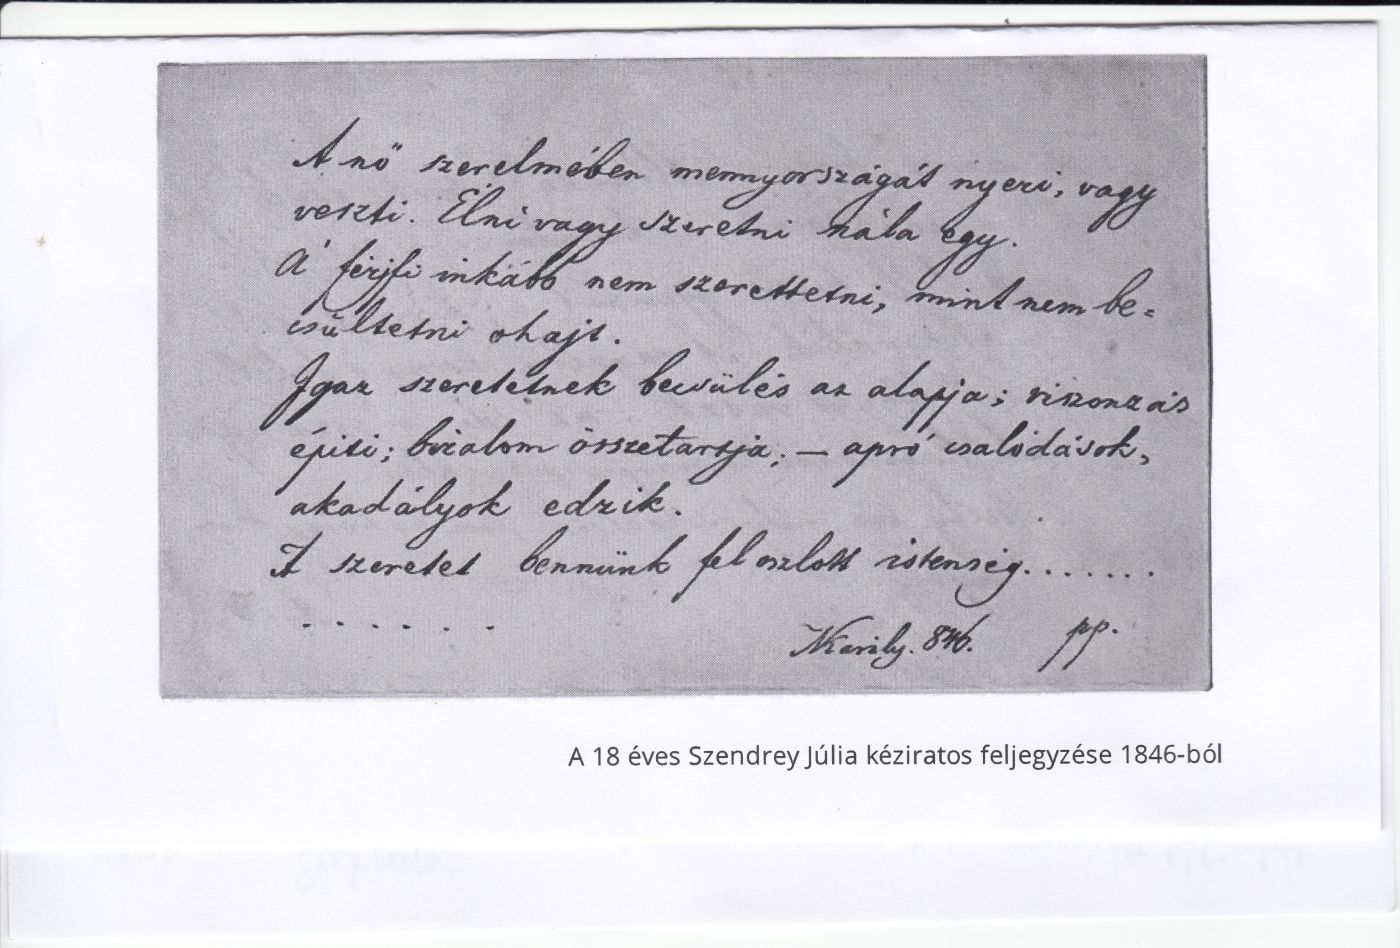 A nő szerelmében mennyországát nyeri, vagy
veszti. Élni vagy szeretni nála egy.
A' férjfi inkább nem szerettetni, mint nem be-
csültetni ohajt.
Igaz szeretetnek becsülés az alapja; viszonzás
épiti; bizalom összetartja; — apró csalódások,
akadályok edzik.
A szeretet bennünk feloszlott istenség.......
. . . . . .
NKároly. 846. pp.
A 18 éves Szendrey Júlia kéziratos feljegyzése 1846-ból